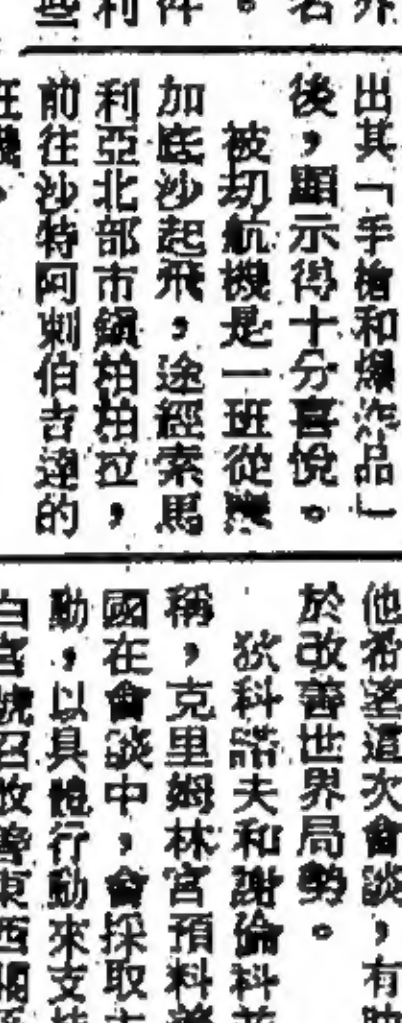 出其「手槍和爆炸品」
後，顯示得十分喜悅。
被刧航機是一班從
加底沙起飛，途經索馬
利亞北部市鎮柏柏拉，
前往沙特阿剌伯吉達的
他希望這次會談，有
於改善世界局勢。
狄科諾夫和謝倫科
稱，克里姆林宮預料
國在會談中，會採取
動，以具體行動來支
白宮號召改善東西